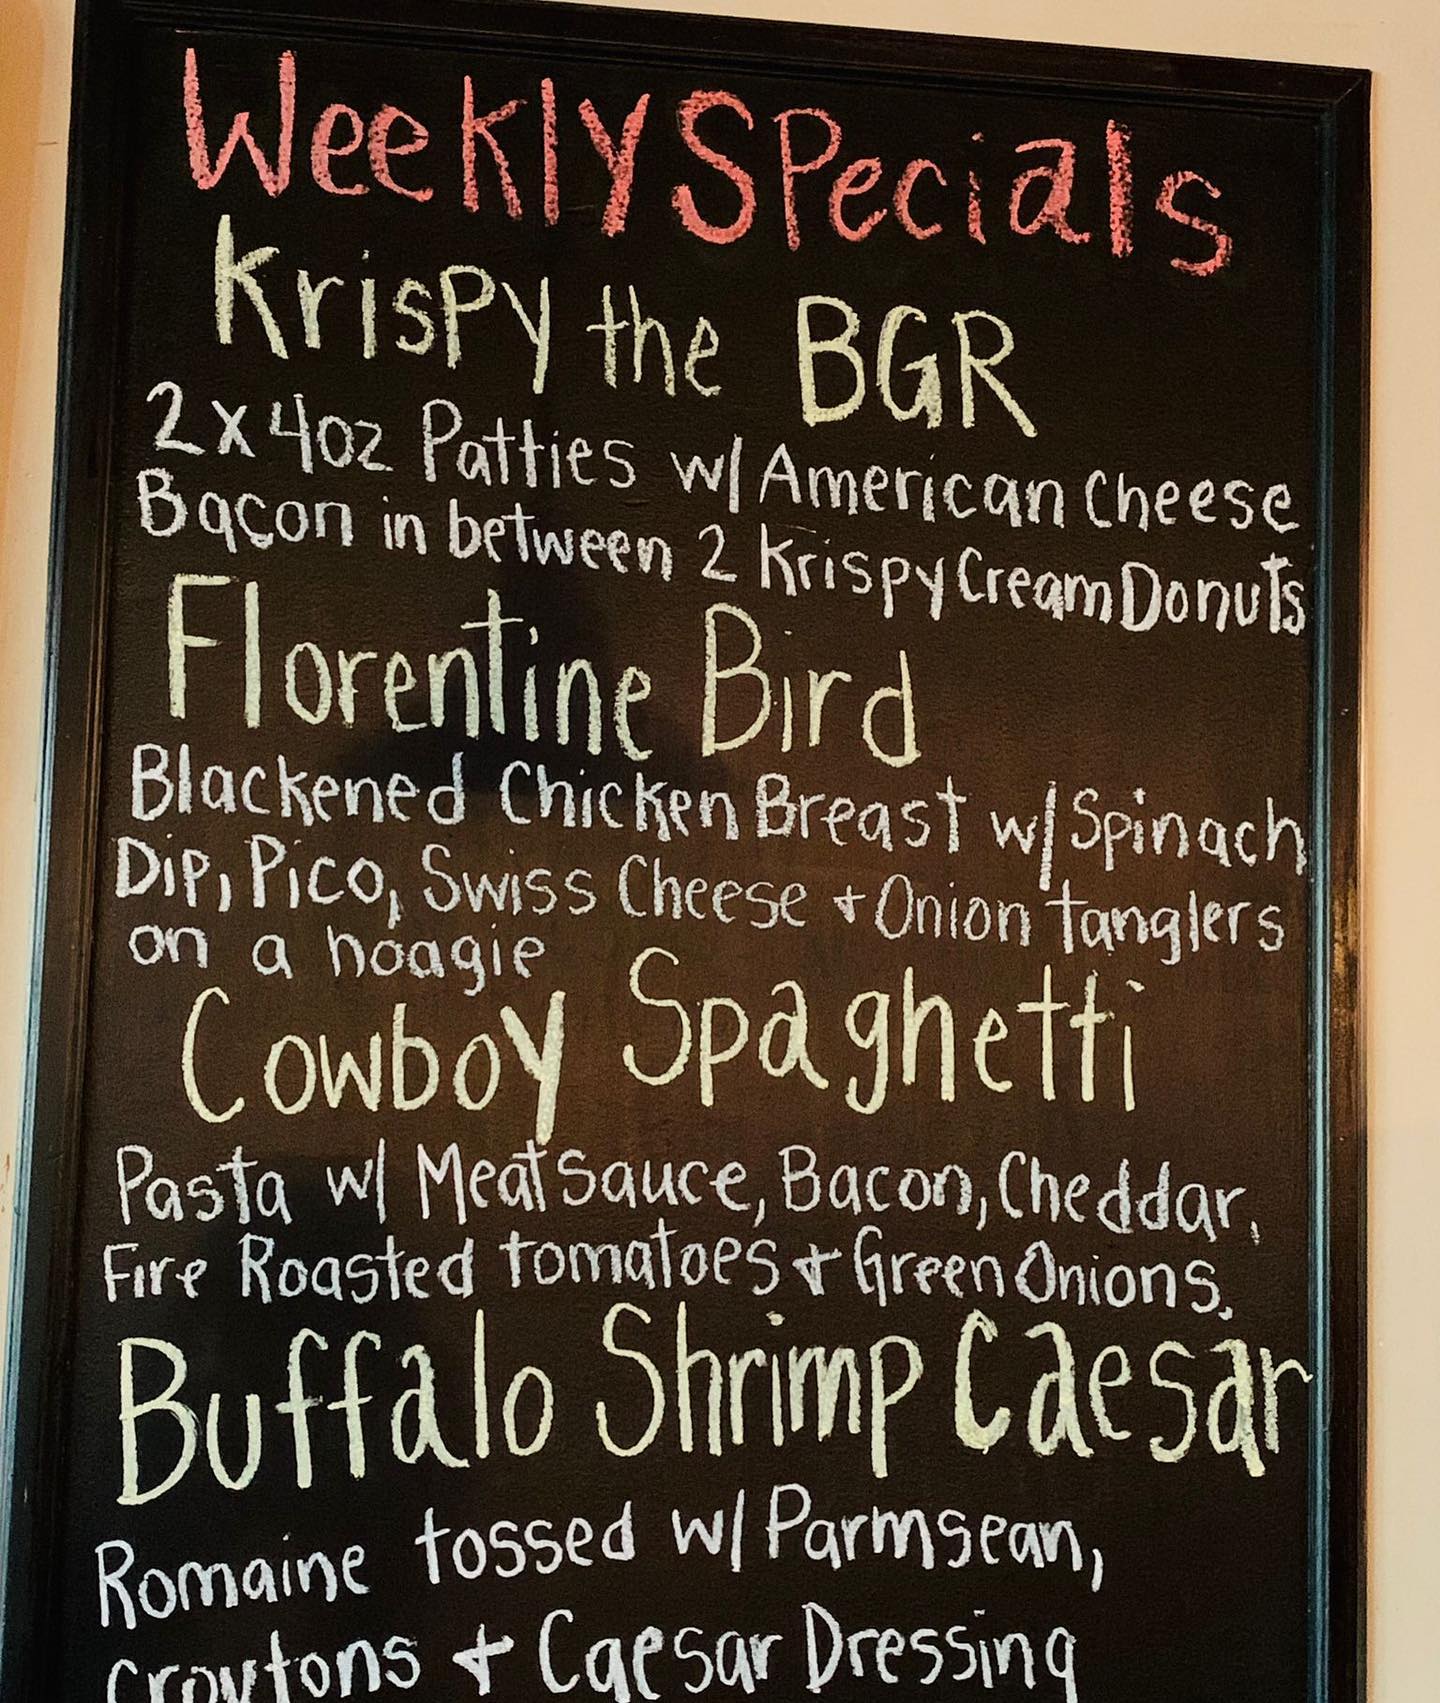 Weekly Specials
Krispy the BGR
2x4oz Patties w/ American Cheese
Bacon in between 2 Krispy Cream Donuts
Florentine Bird
Blackened Chicken Breast w/ Spinach
Dip, Pico, Swiss Cheese + Onion tanglers
on a hoagie
Cowboy Spaghetti
Pasta w/ Meat Sauce, Bacon, Cheddar,
Fire Roasted tomatoes + Green Onions.
Buffalo Shrimp Caesar
Romaine tossed w/ Parmsean,
croutons + Caesar Dressing